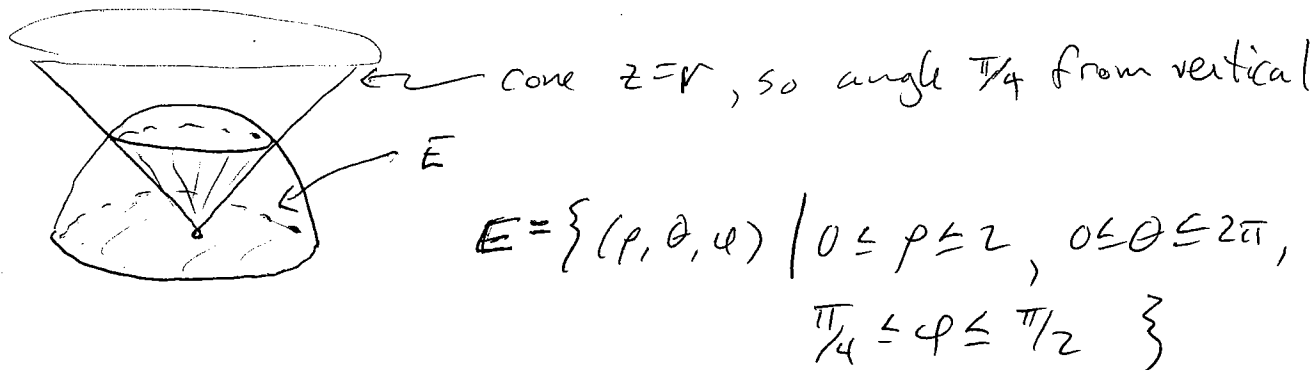 cone z=r, so angle π/4 from vertical
E
E = {(ρ, θ, φ) | 0 ≤ ρ ≤ 2, 0 ≤ θ ≤ 2π,
π/4 ≤ φ ≤ π/2 }